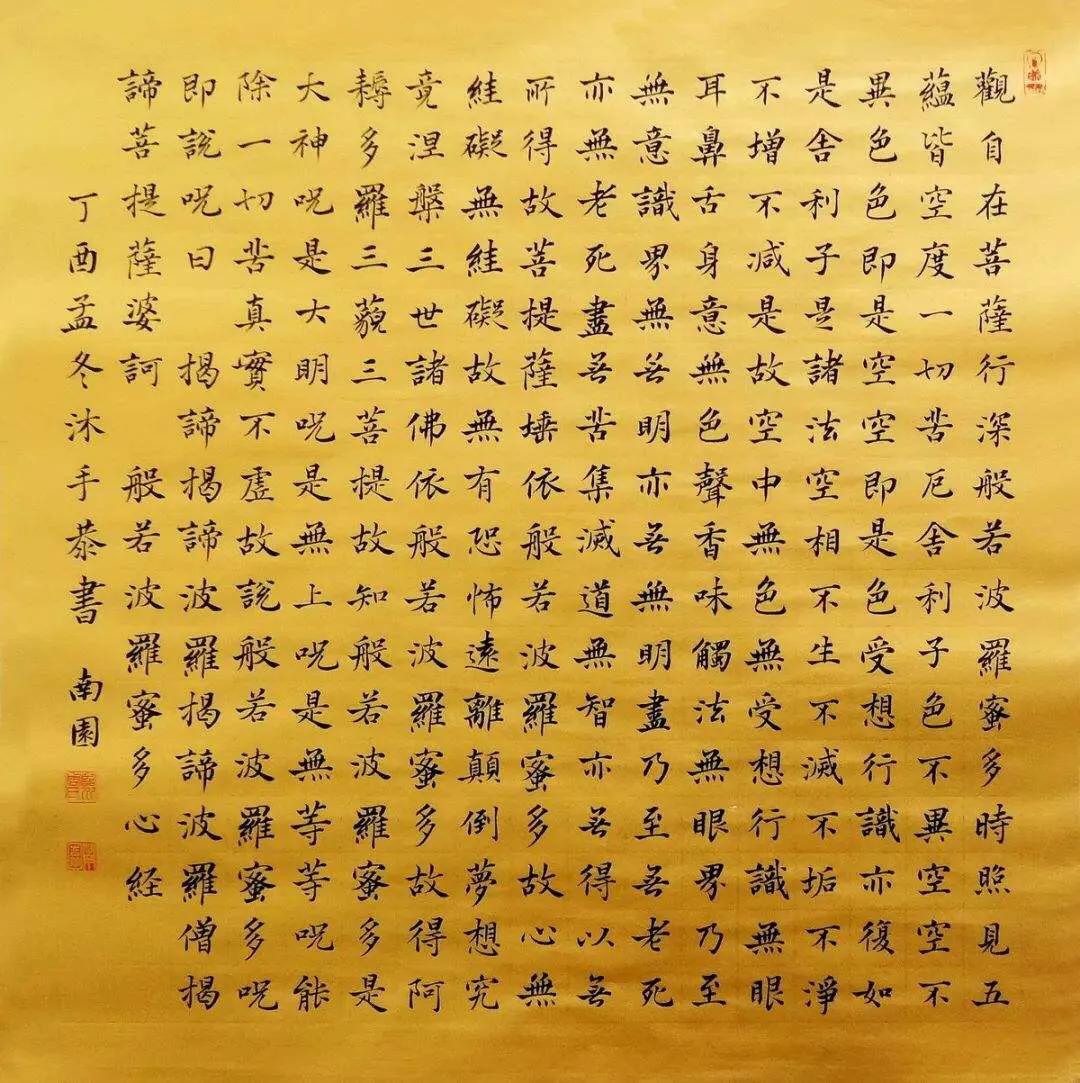 觀自在菩薩行深般若波羅蜜多時照見五
蘊皆空度一切苦厄舍利子色不異空空不
異色色即是空空即是色受想行識亦復如
是舍利子是諸法空相不生不滅不垢不淨
不增不減是故空中無色無受想行識無眼
耳鼻舌身意無色聲香味觸法無眼界乃至
無意識界無无明亦无無明盡乃至无老死
亦無老死盡无苦集滅道無智亦无得以无
所得故菩提薩埵依般若波羅蜜多故心無
絓礙無絓礙故無有恐怖遠離顛倒夢想究
竟涅槃三世諸佛依般若波羅蜜多故得阿
耨多羅三藐三菩提故知般若波羅蜜多是
大神呪是大明呪是無上呪是無等等呪能
除一切苦真實不虛故說般若波羅蜜多呪
即說呪曰 揭諦揭諦波羅揭諦波羅僧揭
諦菩提薩婆訶 般若波羅蜜多心経
丁酉孟冬沐手恭書 南園